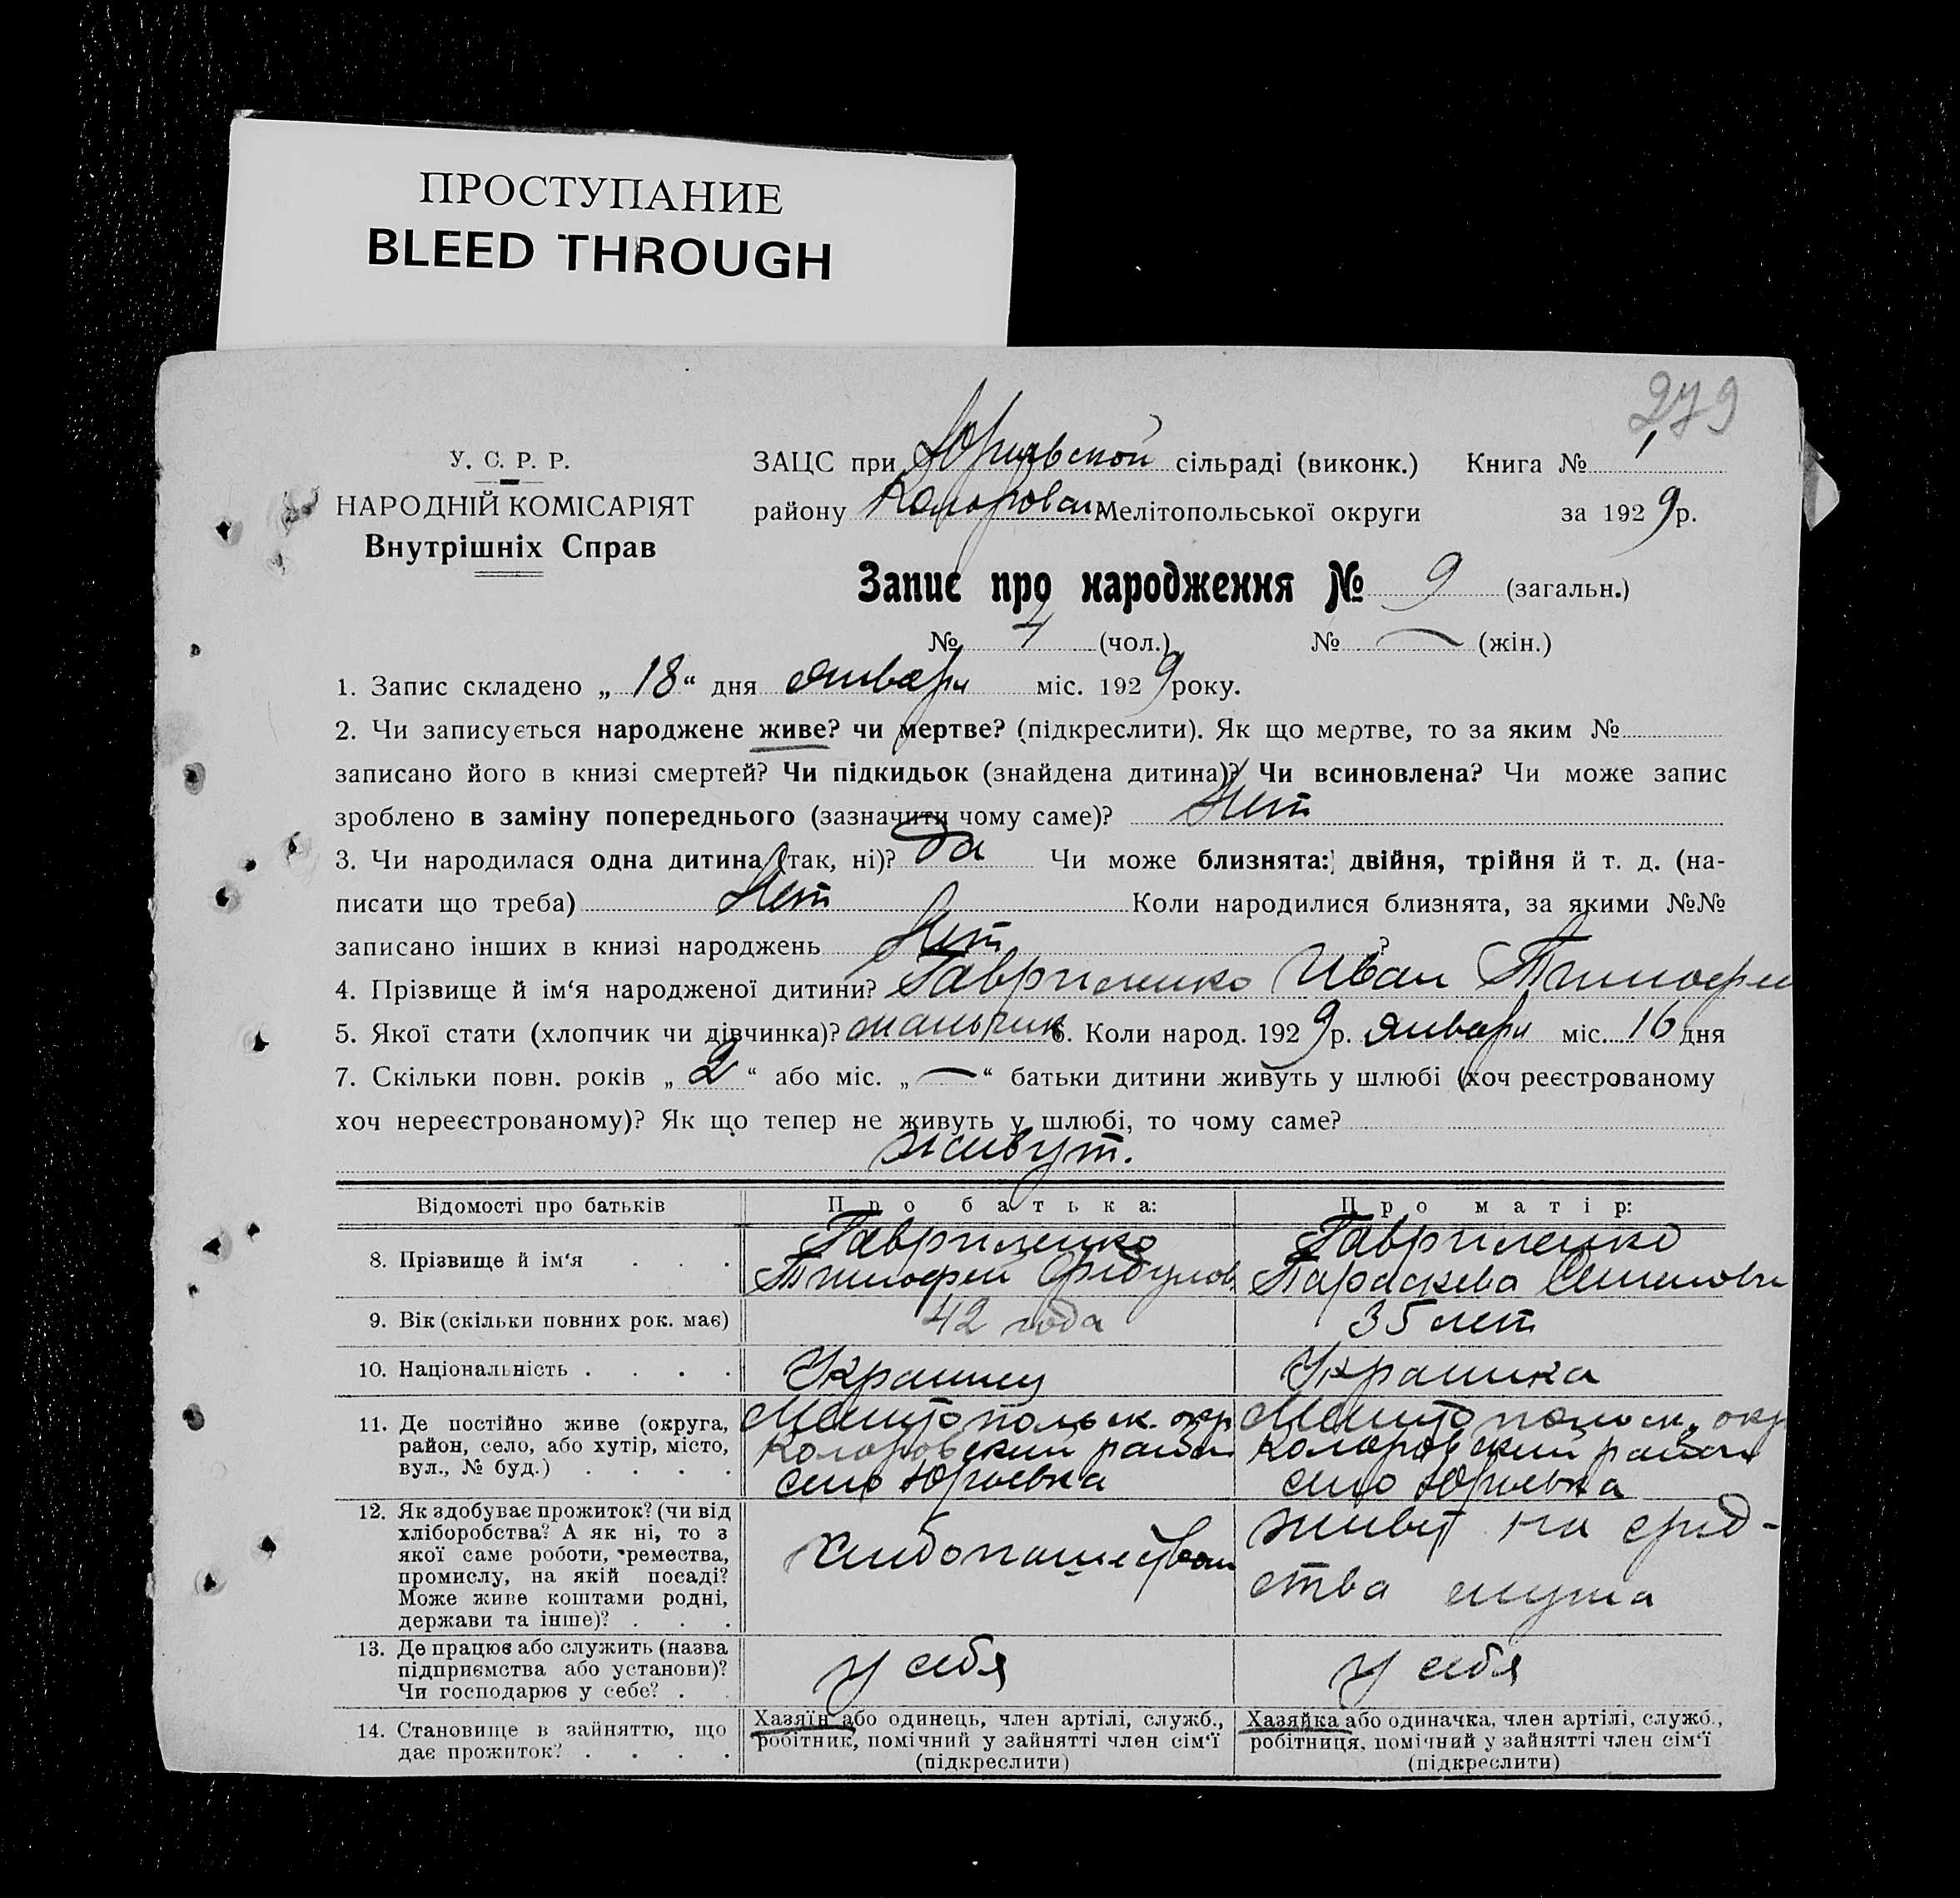 ПРОСТУПАНИЕ
BLEED THROUGH
279
У. С. Р. Р.
НАРОДНІЙ КОМІСАРІЯТ
Внутрішніх Справ
ЗАЦС при Юрьевской сільраді (виконк.) Книга № 1
району Коларовск. Мелітопольської округи за 1929р.
Запис про народження № 9 (загальн.)
№ 7 (чол.) № — (жін.)
1. Запис складено „ 18 “ дня января міс. 1929 року.
2. Чи записується народжене живе? чи мертве? (підкреслити). Як що мертве, то за яким №
записано його в книзі смертей? Чи підкидьок (знайдена дитина)? Чи всиновлена? Чи може запис
зроблено в заміну попереднього (зазначити чому саме)? Нет
3. Чи народилася одна дитина (так, ні)? да Чи може близнята: двійня, трійня й т. д. (на-
писати що треба) Нет Коли народилися близнята, за якими №№
записано інших в книзі народжень Нет ?
4. Прізвище й ім‘я народженої дитини? Гавриленко Иван Тимофеи
5. Якої стати (хлопчик чи дівчинка)? мальчик 6. Коли народ. 1929р. января міс. 16 дня
7. Скільки повн. років „ 2 “ або міс. „ — “ батьки дитини живуть у шлюбі (хоч реєстрованому
хоч нереєстрованому)? Як що тепер не живуть у шлюбі, то чому саме?
живут.
Відомості про батьків Про батька: Про матір:
8. Прізвище й ім‘я . . . Гавриленко Тимофей Гавриленко Параскева Семеновн
9. Вік (скільки повних рок. має) 42 года 35 лет
10. Національність . . . . Украинец Украинка
11. Де постійно живе (округа, Мелитопольск. окр Мелитопольск. окр
район, село, або хутір, місто, Коларовский район Коларовский район
вул., № буд.) . . . . село Юрьевка село Юрьевка
12. Як здобуває прожиток? (чи від
хліборобства? А як ні, то з
якої саме роботи, ремества, хлебопашеством живет на сред-
промислу, на якій посаді? ства мужа
Може живе коштами родні,
держави та інше)? . . .
13. Де працює або служить (назва
підприємства або установи)? у себя у себя
Чи господарює у себе? . .
14. Становище в зайняттю, що
дає прожиток? . . . .
Хазяїн або одинець, член артілі, служб.,
робітник, помічний у зайнятті член сім‘ї
(підкреслити)
Хазяйка або одиначка, член артілі, служб.,
робітниця, помічний у зайнятті член сім‘ї
(підкреслити)